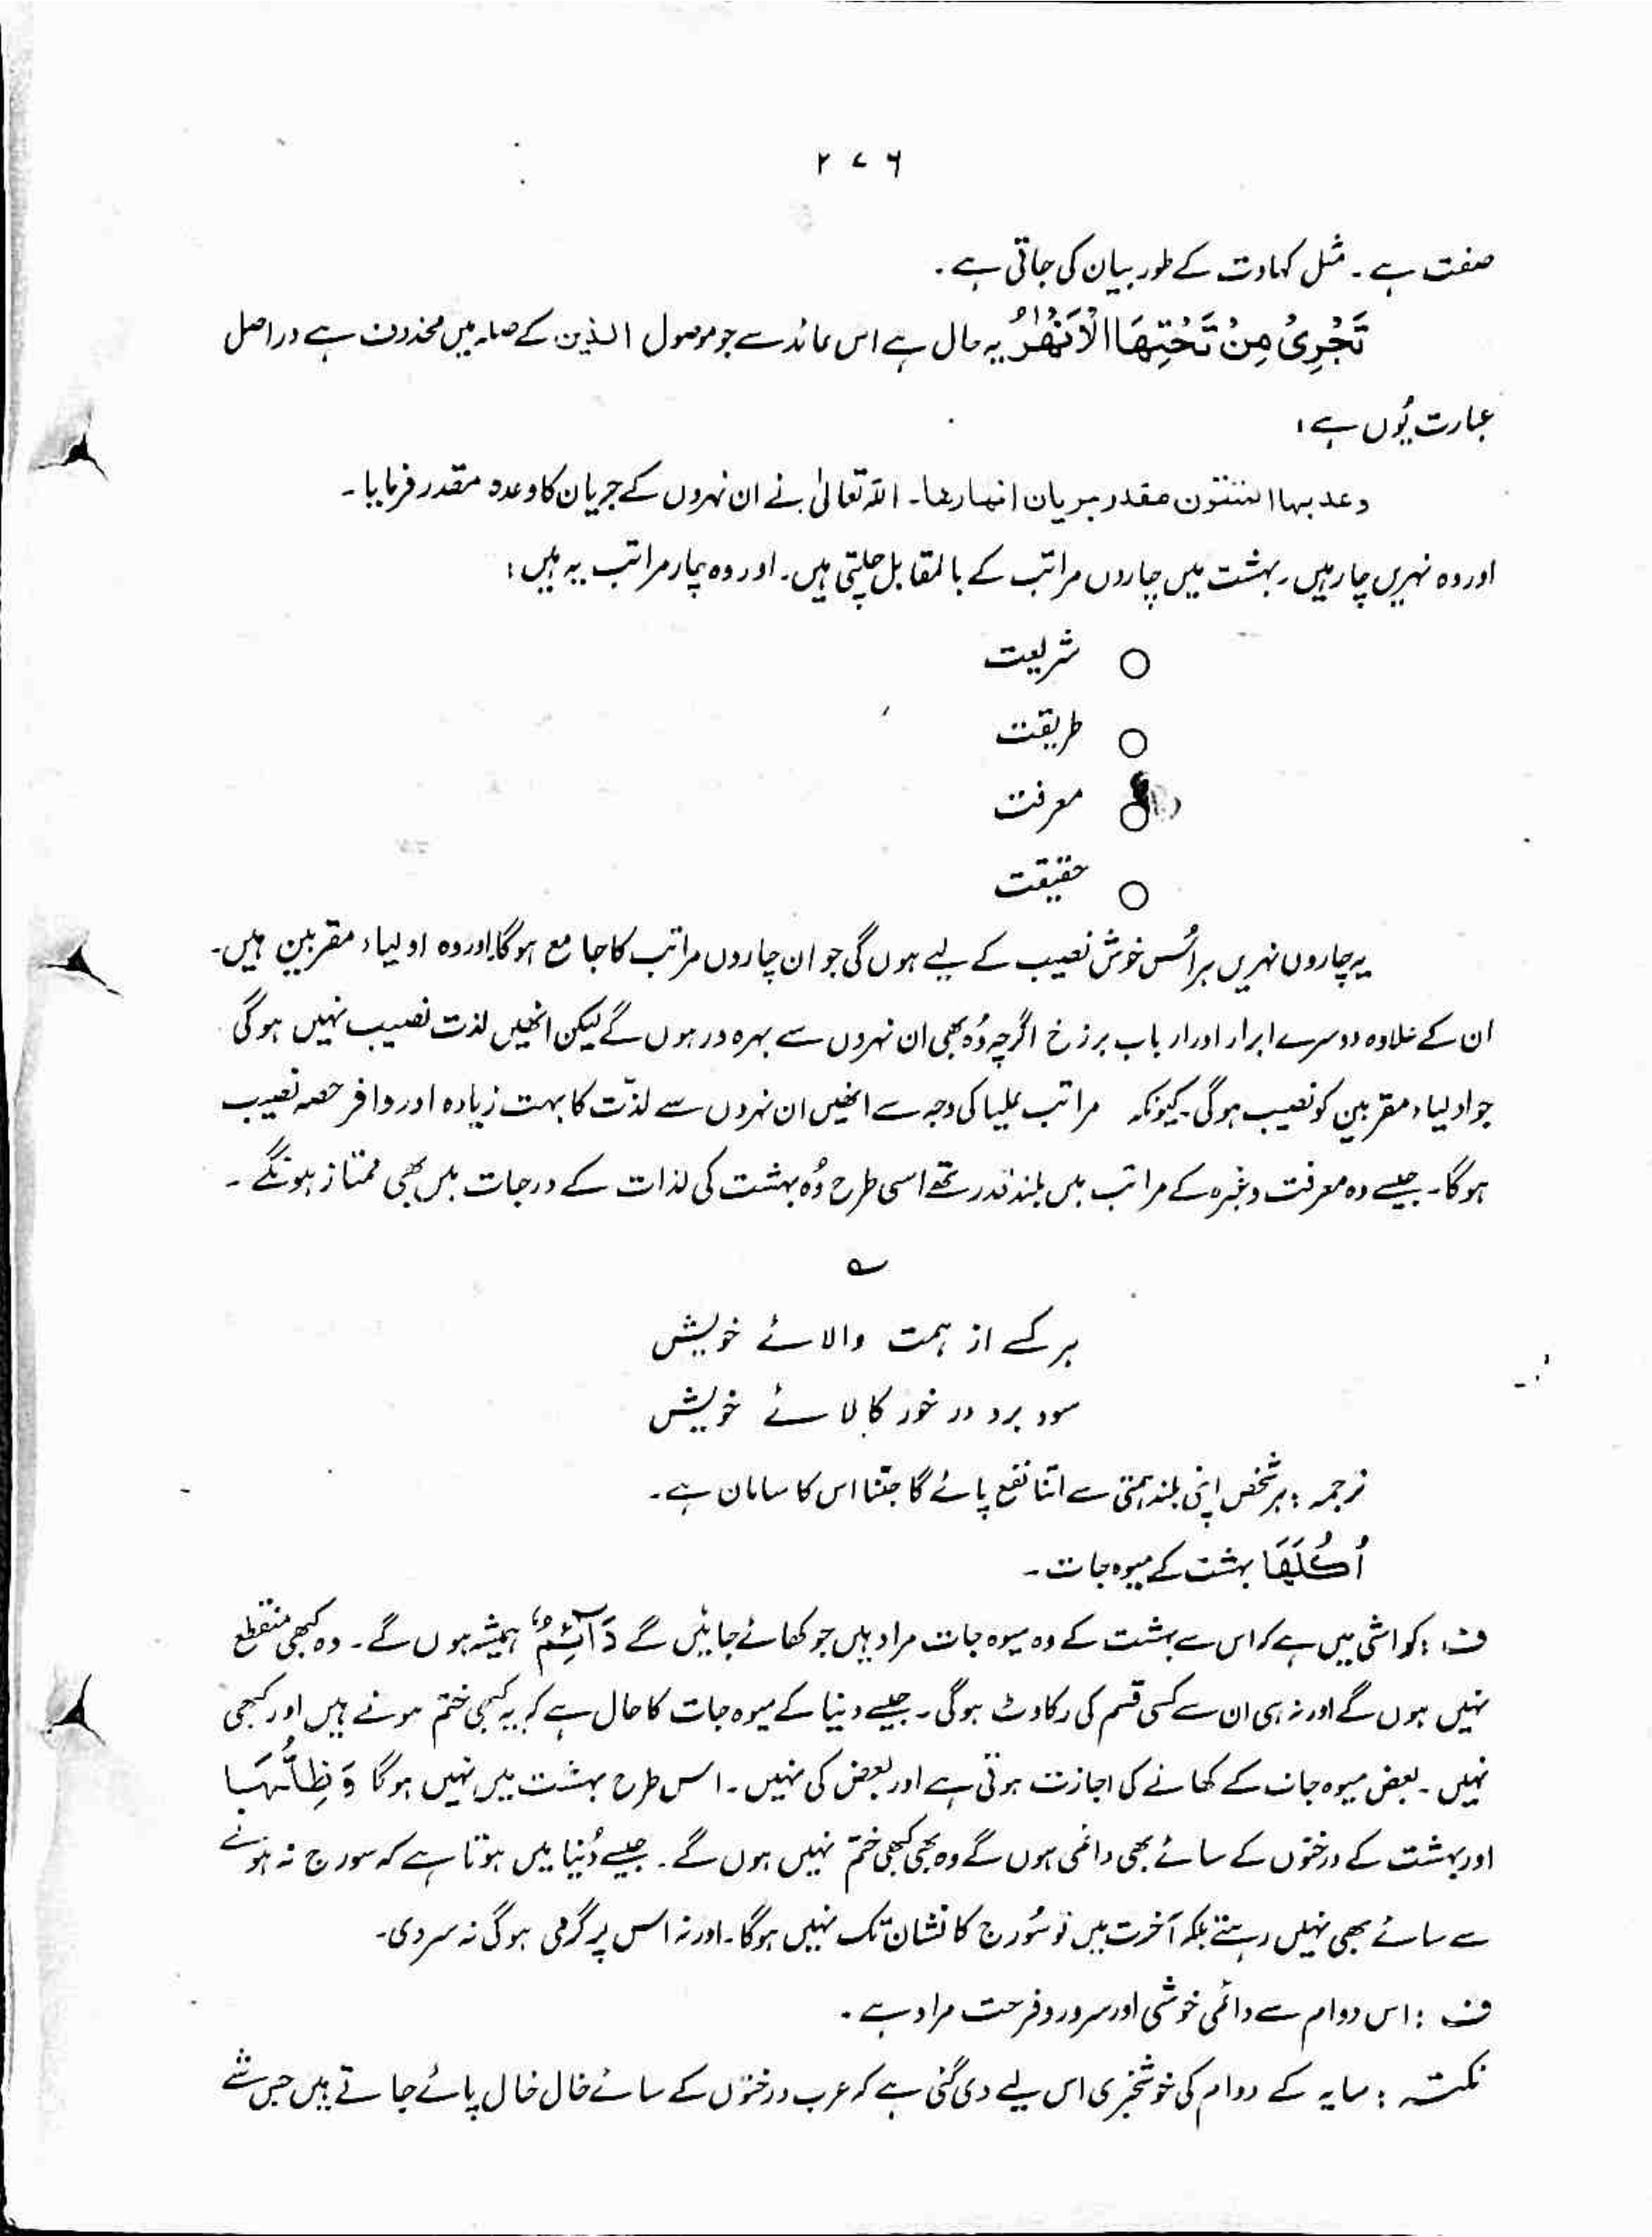 ۲۷۶
صفت ہے۔ مثل کہاوت کے طور بیان کی جاتی ہے۔
تَجْرِیْ مِنْ تَحْتِهَا الْاَنْهٰرُ یہ حال ہے اس عائد سے جو موصول الذین کے صلہ میں محذوف ہے دراصل
عبارت یُوں ہے:
وعد بہا المتقون مقدر جریان انہارھا۔ اللہ تعالیٰ نے ان نہروں کے جریان کا وعدہ مقدر فرمایا۔
اور وہ نہریں چار ہیں۔ بہشت میں چاروں مراتب کے بالمقابل چلتی ہیں۔ اور وہ چار مراتب یہ ہیں:
○ شریعت
○ طریقت
○ معرفت
○ حقیقت
یہ چاروں نہریں ہر اُس خوش نصیب کے لیے ہوں گی جو ان چاروں مراتب کا جامع ہوگا اور وہ اولیاء مقربین ہیں۔
ان کے علاوہ دوسرے ابرار اور ارباب برزخ اگرچہ وُہ بھی ان نہروں سے بہرہ ور ہوں گے لیکن انھیں لذت نصیب نہیں ہوگی
جو اولیاء مقربین کو نصیب ہوگی۔ کیونکہ مراتب علیا کی وجہ سے انھیں ان نہروں سے لذّت کا بہت زیادہ اور وافر حصہ نصیب
ہوگا۔ جیسے وہ معرفت وغیرہ کے مراتب میں بلند قدر تھے اسی طرح وُہ بہشت کی لذات کے درجات میں بھی ممتاز ہونگے۔
؎
ہر کسے از ہمت والائے خویش
سود برد در خور کالائے خویش
ترجمہ: ہر شخص اپنی بلند ہمتی سے اتنا نفع پائے گا جتنا اس کا سامان ہے۔
اُكُلُهَا بہشت کے میوہ جات۔
ف: کواشی میں ہے کہ اس سے بہشت کے وہ میوہ جات مراد ہیں جو کھائے جائیں گے دَآئِمٌ ہمیشہ ہوں گے۔ وہ کبھی منقطع
نہیں ہوں گے اور نہ ہی ان سے کسی قسم کی رکاوٹ ہوگی۔ جیسے دنیا کے میوہ جات کا حال ہے کہ یہ کبھی ختم ہوتے ہیں اور کبھی
نہیں۔ بعض میوہ جات کے کھانے کی اجازت ہوتی ہے اور بعض کی نہیں۔ اس طرح بہشت میں نہیں ہوگا وَظِلُّهَا
اور بہشت کے درختوں کے سائے بھی دائمی ہوں گے وہ بھی کبھی ختم نہیں ہوں گے۔ جیسے دُنیا میں ہوتا ہے کہ سورج نہ ہونے
سے سائے بھی نہیں رہتے بلکہ آخرت میں تو سُورج کا نشان تک نہیں ہوگا۔ اور نہ اس پر گرمی ہوگی نہ سردی۔
ف: اس دوام سے دائمی خوشی اور سرور و فرحت مراد ہے۔
نکتہ: سایہ کے دوام کی خوشخبری اس لیے دی گئی ہے کہ عرب درختوں کے سائے خال خال پائے جاتے ہیں جس شے